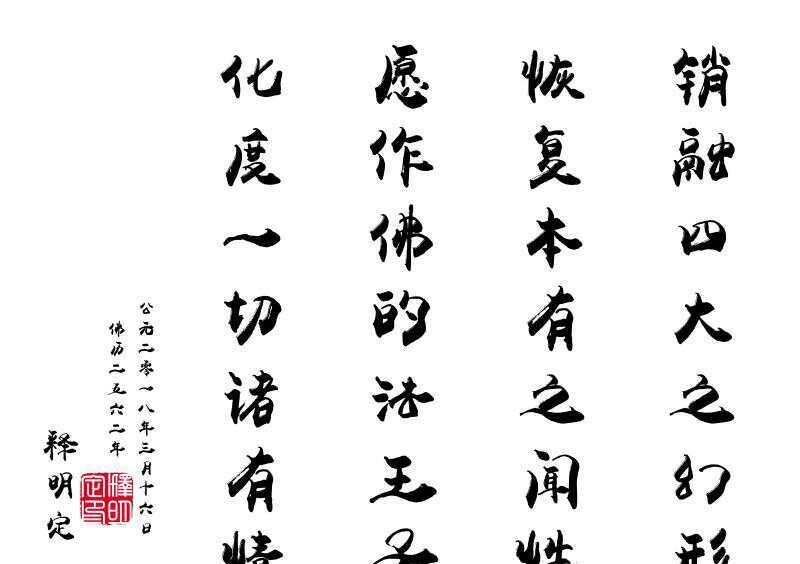 销融四大之幻形
恢复本有之闻性
愿作佛的法王子
化度一切诸有情
公元二零一八年三月十六日
佛历二五六二年
释明定
釋明定印